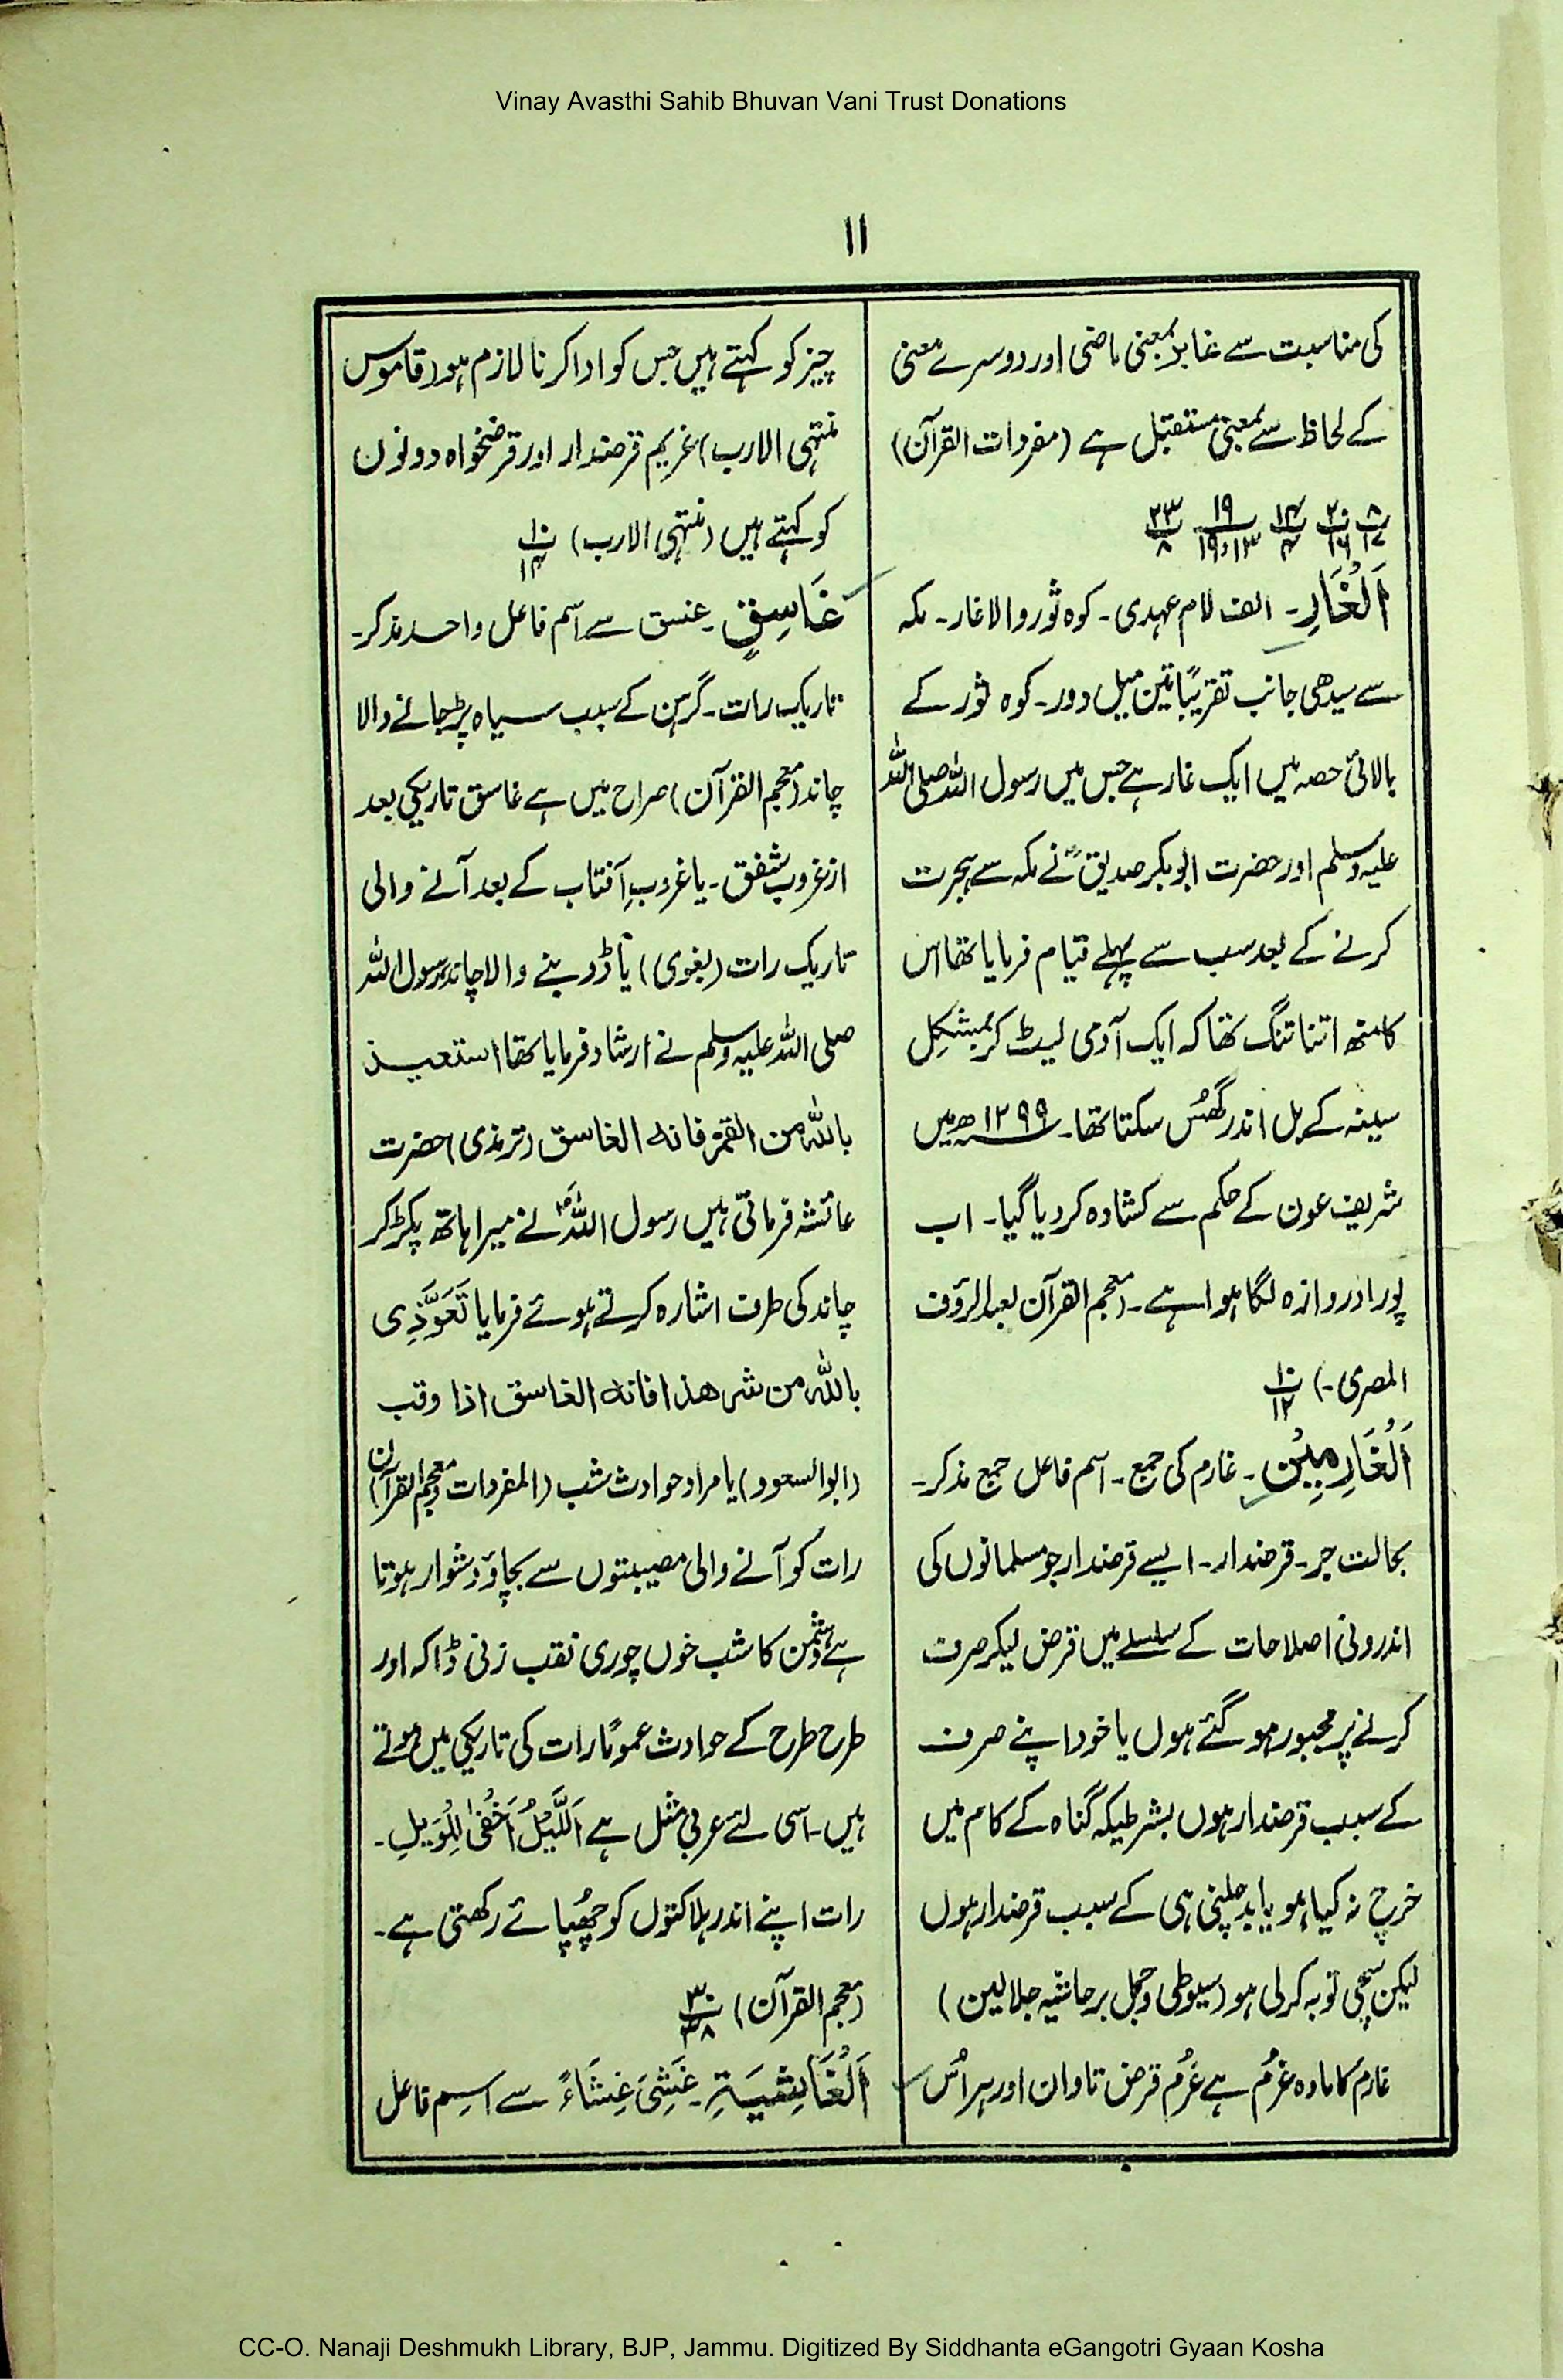 Vinay Avasthi Sahib Bhuvan Vani Trust Donations
۱۱
کی مناسبت سے غابر بمعنی ماضی اور دوسرے معنی
کے لحاظ سے بمعنی مستقبل ہے (مفردات القرآن)
اَلْغَارِ۔ الف لام عہدی۔ کوہ ثور والا غار۔ مکہ
سے سیدھی جانب تقریبًا تین میل دور۔ کوہ ثور کے
بالائی حصہ میں ایک غار ہے جس میں رسول اللہ صلی اللہ
علیہ وسلم اور حضرت ابو بکر صدیقؓ نے مکہ سے ہجرت
کرنے کے بعد سب سے پہلے قیام فرمایا تھا اس
کا منھ اتنا تنگ تھا کہ ایک آدمی لیٹ کر بمشکل
سینہ کے بل اندر گھُس سکتا تھا۔ ۱۲۹۹ھ میں
شریف عون کے حکم سے کشادہ کر دیا گیا۔ اب
پورا دروازہ لگا ہوا ہے۔ (معجم القرآن لعبدالرؤف
المصری۔) ۱۰ / ۱۲
اَلْغَارِمِیْنَ۔ غارم کی جمع۔ اسم فاعل جمع مذکر۔
بحالت جر۔ قرضدار۔ ایسے قرضدار جو مسلمانوں کی
اندرونی اصلاحات کے سلسلے میں قرض لیکر صرف
کرنے پر مجبور ہو گئے ہوں یا خود اپنے صرف
کے سبب قرضدار ہوں بشرطیکہ گناہ کے کام میں
خرچ نہ کیا ہو یا بد چلنی ہی کے سبب قرضدار ہوں
لیکن سچی توبہ کر لی ہو (سیوطی و جمل بر حاشیہ جلالین)
غارم کا مادہ غُرم ہے غُرم قرض تاوان اور ہر اُس
چیز کو کہتے ہیں جس کو ادا کرنا لازم ہو (قاموس
منتہی الارب) غریم قرضدار اور قرضخواہ دونوں
کو کہتے ہیں (منتہی الارب) ۱۰ / ۱۴
غَاسِقٍ۔ غسق سے اسم فاعل واحد مذکر۔
تاریک رات۔ گرہن کے سبب سیاہ پڑ جانے والا
چاند (معجم القرآن) صراح میں ہے غاسق تاریکی بعد
از غروب شفق۔ یا غروبِ آفتاب کے بعد آنے والی
تاریک رات (بغوی) یا ڈوبنے والا چاند رسول اللہ
صلی اللہ علیہ وسلم نے ارشاد فرمایا تھا استعیذ
باللہ من القمر فانہ الغاسق (ترمذی) حضرت
عائشہ فرماتی ہیں رسول اللہؐ نے میرا ہاتھ پکڑ کر
چاند کی طرف اشارہ کرتے ہوئے فرمایا تَعَوَّذِی
باللہ من شر ھذا فانہ الغاسق اذا وقب
(ابوالسعود) یا مراد حوادث شب (المفردات و معجم القرآن)
رات کو آنے والی مصیبتوں سے بچاؤ دشوار ہوتا
ہے دشمن کا شب خوں چوری نقب زنی ڈاکہ اور
طرح طرح کے حوادث عمومًا رات کی تاریکی میں ہوتے
ہیں۔ اسی لئے عربی مثل ہے اَللَّیْلُ اَخْفٰی لِلْوَیْلِ۔
رات اپنے اندر ہلاکتوں کو چھُپائے رکھتی ہے۔
(معجم القرآن) ۳۰ / ۳۸
اَلْغَاشِیَۃِ۔ غَشِیَ غِشَاءً سے اسم فاعل
CC-O. Nanaji Deshmukh Library, BJP, Jammu. Digitized By Siddhanta eGangotri Gyaan Kosha